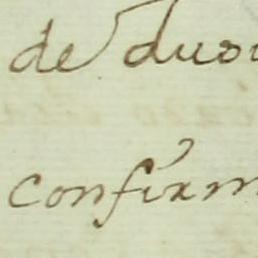 de duo
confirm